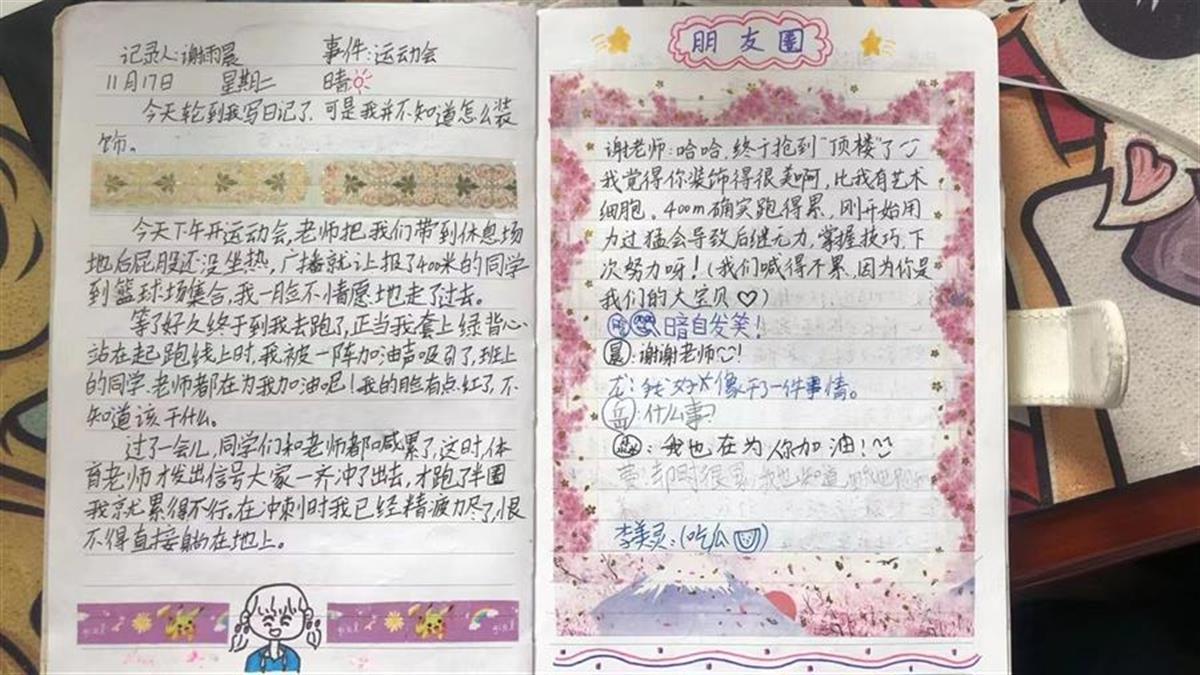 记录人:谢雨晨 事件:运动会
11月17日 星期二 晴
今天轮到我写日记了,可是我并不知道怎么装
饰。
今天下午开运动会,老师把我们带到休息场
地后屁股还没坐热,广播就让报了400米的同学
到篮球场集合,我一脸不情愿地走了过去。
等了好久终于到我去跑了,正当我套上绿背心
站在起跑线上时,我被一阵加油声吸引了,班上
的同学、老师都在为我加油吧!我的脸有点红了,不
知道该干什么。
过了一会儿,同学们和老师都喊累了,这时,体
育老师才发出信号大家一齐冲了出去,才跑了半圈
我就累得不行。在冲刺时我已经精疲力尽了,恨
不得直接躺在地上。
girl girl girl
朋友圈
谢老师:哈哈,终于抢到“顶楼”了
我觉得你装饰得很美啊,比我有艺术
细胞。400m确实跑得累,刚开始用
力过猛会导致后继无力,掌握技巧,下
次努力呀!(我们喊得不累,因为你是
我们的大宝贝♡)
暗自发笑!
晨:谢谢老师!
龙:我好像干了一件事情。
岳:什么事?
:我也在为你加油!
李美灵:(吃瓜)